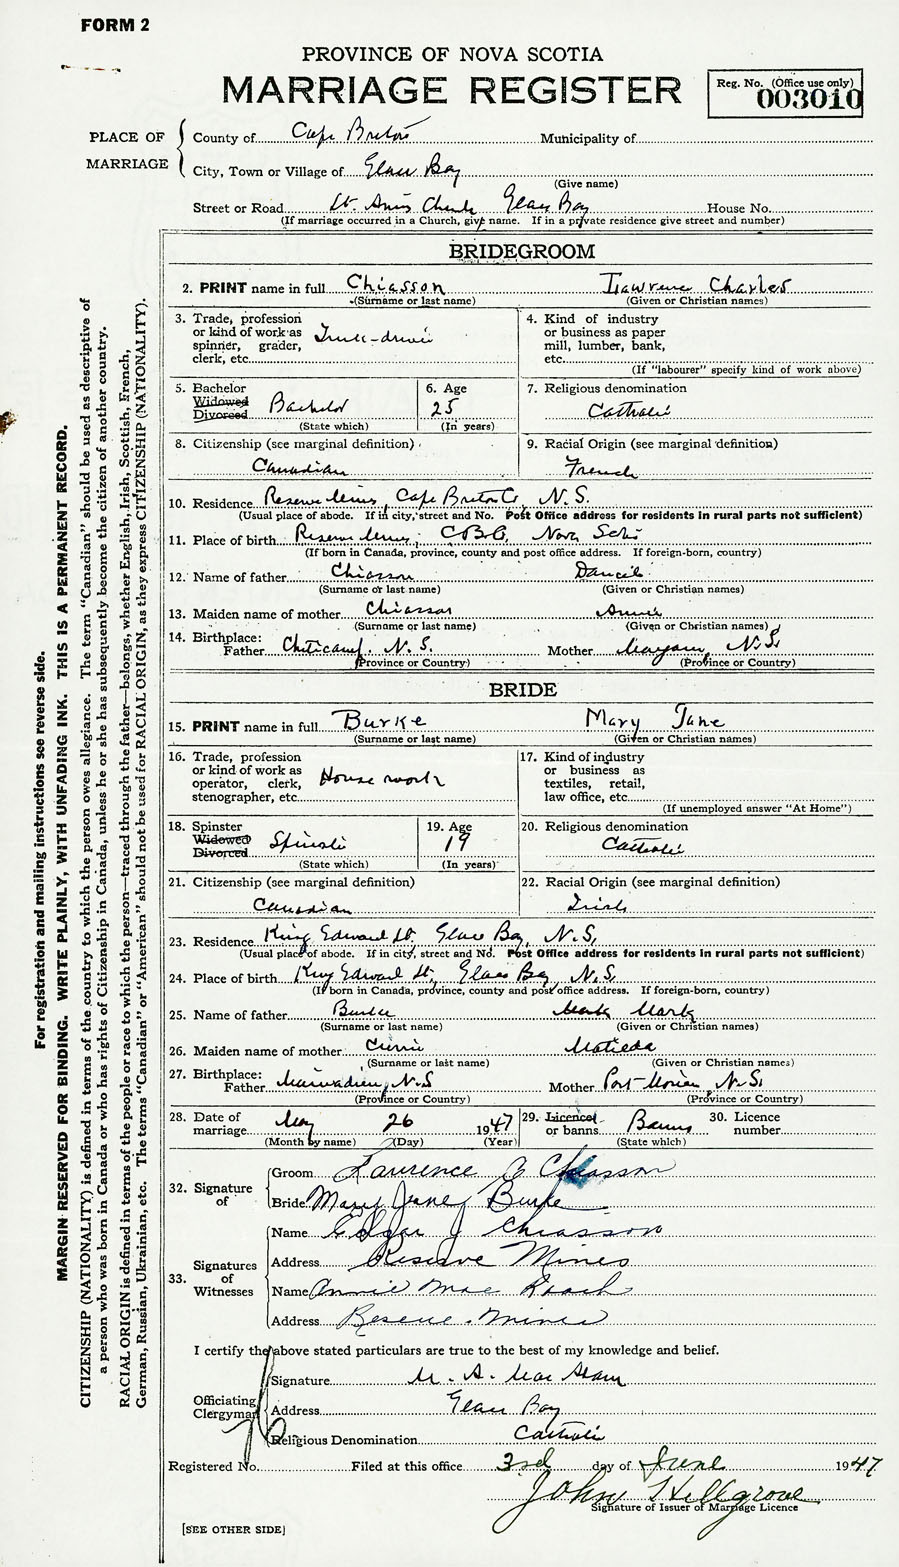 FORM 2
PROVINCE OF NOVA SCOTIA
MARRIAGE REGISTER
Reg. No. (Office use only)
003010
PLACE OF MARRIAGE
County of Cape Breton Municipality of
City, Town or Village of Glace Bay
(Give name)
Street or Road St. Anns Church Glace Bay House No.
(If marriage occurred in a Church, give name. If in a private residence give street and number)
BRIDEGROOM
2. PRINT name in full Chiasson Lawrence Charles
(Surname or last name) (Given or Christian names)
3. Trade, profession or kind of work as spinner, grader, clerk, etc. Truck-driver
4. Kind of industry or business as paper mill, lumber, bank, etc.
(If "labourer" specify kind of work above)
5. Bachelor Widowed Divorced Bachelor
(State which)
6. Age 25
(In years)
7. Religious denomination
Catholic
8. Citizenship (see marginal definition)
Canadian
9. Racial Origin (see marginal definition)
French
10. Residence Reserve Mines, Cape Breton Co, N.S.
(Usual place of abode. If in city, street and No. Post Office address for residents in rural parts not sufficient)
11. Place of birth Reserve Mines, C.B.Co, Nova Scotia
(If born in Canada, province, county and post office address. If foreign-born, country)
12. Name of father Chiasson Daniel
(Surname or last name) (Given or Christian names)
13. Maiden name of mother Chiasson Annie
(Surname or last name) (Given or Christian names)
14. Birthplace:
Father Cheticamp, N.S. Mother N.S.
(Province or Country) (Province or Country)
BRIDE
15. PRINT name in full Burke Mary Jane
(Surname or last name) (Given or Christian names)
16. Trade, profession or kind of work as operator, clerk, stenographer, etc. House work
17. Kind of industry or business as textiles, retail, law office, etc.
(If unemployed answer "At Home")
18. Spinster Widowed Divorced Spinster
(State which)
19. Age 19
(In years)
20. Religious denomination
Catholic
21. Citizenship (see marginal definition)
Canadian
22. Racial Origin (see marginal definition)
Irish
23. Residence King Edward St, Glace Bay, N.S.
(Usual place of abode. If in city, street and No. Post Office address for residents in rural parts not sufficient)
24. Place of birth King Edward St, Glace Bay, N.S.
(If born in Canada, province, county and post office address. If foreign-born, country)
25. Name of father Burke Mark
(Surname or last name) (Given or Christian names)
26. Maiden name of mother Currie Matilda
(Surname or last name) (Given or Christian names)
27. Birthplace:
Father Mainadieu, N.S Mother Port-Morien, N.S.
(Province or Country) (Province or Country)
28. Date of marriage May 26 1947
(Month by name) (Day) (Year)
29. Licence or banns Banns
(State which)
30. Licence number
32. Signature of
Groom Lawrence C Chiasson
Bride Mary Jane Burke
33. Signatures of Witnesses
Name Edgar J Chiasson
Address Reserve Mines
Name Annie Mae Roach
Address Reserve Mines
I certify the above stated particulars are true to the best of my knowledge and belief.
Officiating Clergyman
Signature M. A. Mac Adam
Address Glace Bay
Religious Denomination Catholic
Registered No. Filed at this office 3rd day of June 1947
John Hillgrove
Signature of Issuer of Marriage Licence
[SEE OTHER SIDE]
For registration and mailing instructions see reverse side.
MARGIN RESERVED FOR BINDING. WRITE PLAINLY, WITH UNFADING INK. THIS IS A PERMANENT RECORD.
CITIZENSHIP (NATIONALITY) is defined in terms of the country to which the person owes allegiance. The term "Canadian" should be used as descriptive of
a person who was born in Canada or who has rights of Citizenship in Canada, unless he or she has subsequently become the citizen of another country.
RACIAL ORIGIN is defined in terms of the people or race to which the person—traced through the father—belongs, whether English, Irish, Scottish, French,
German, Russian, Ukrainian, etc. The terms "Canadian" or "American" should not be used for RACIAL ORIGIN, as they express CITIZENSHIP (NATIONALITY).